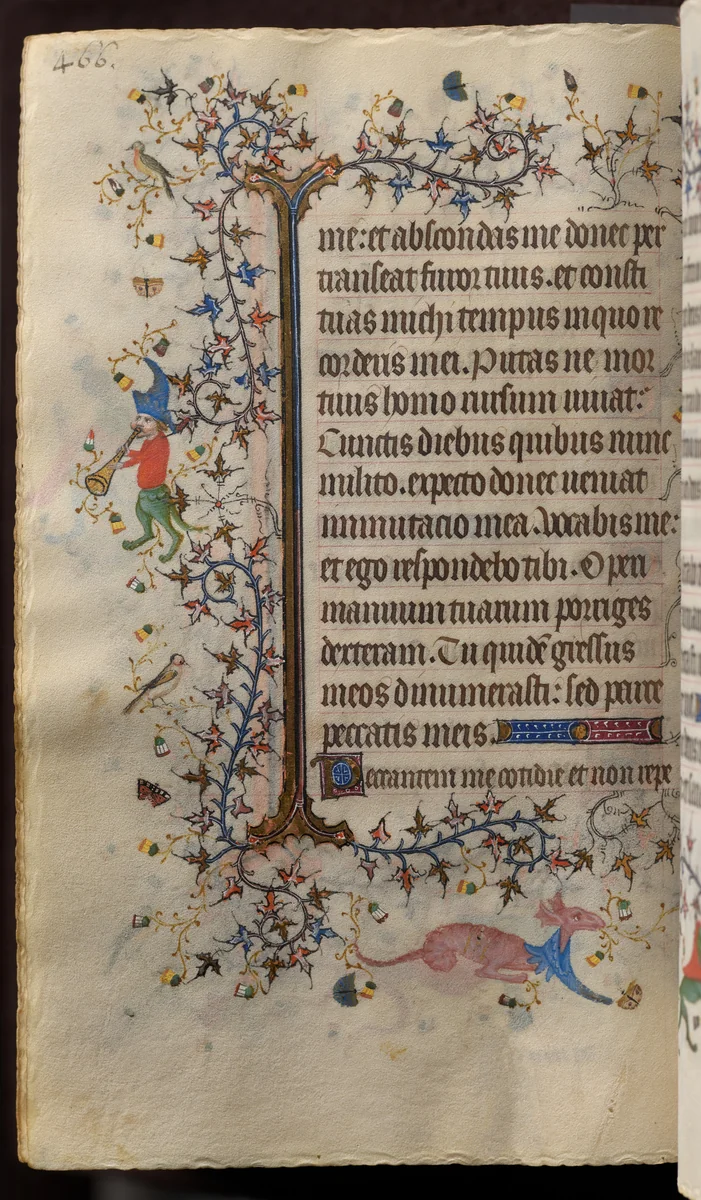 466.
me: et abscondas me donec per
transeat furor tuus. et consti
tuas michi tempus in quo re
corderis mei. Putas ne mor
tuus homo rursum uiuat:
Cunctis diebus quibus nunc
milito. expecto donec ueniat
inmutacio mea. Vocabis me:
et ego respondebo tibi. Operi
manuum tuarum porriges
dexteram. Tu quidē gressus
meos dinumerasti: sed parce
peccatis meis.
Peccantem me cotidie et non repe